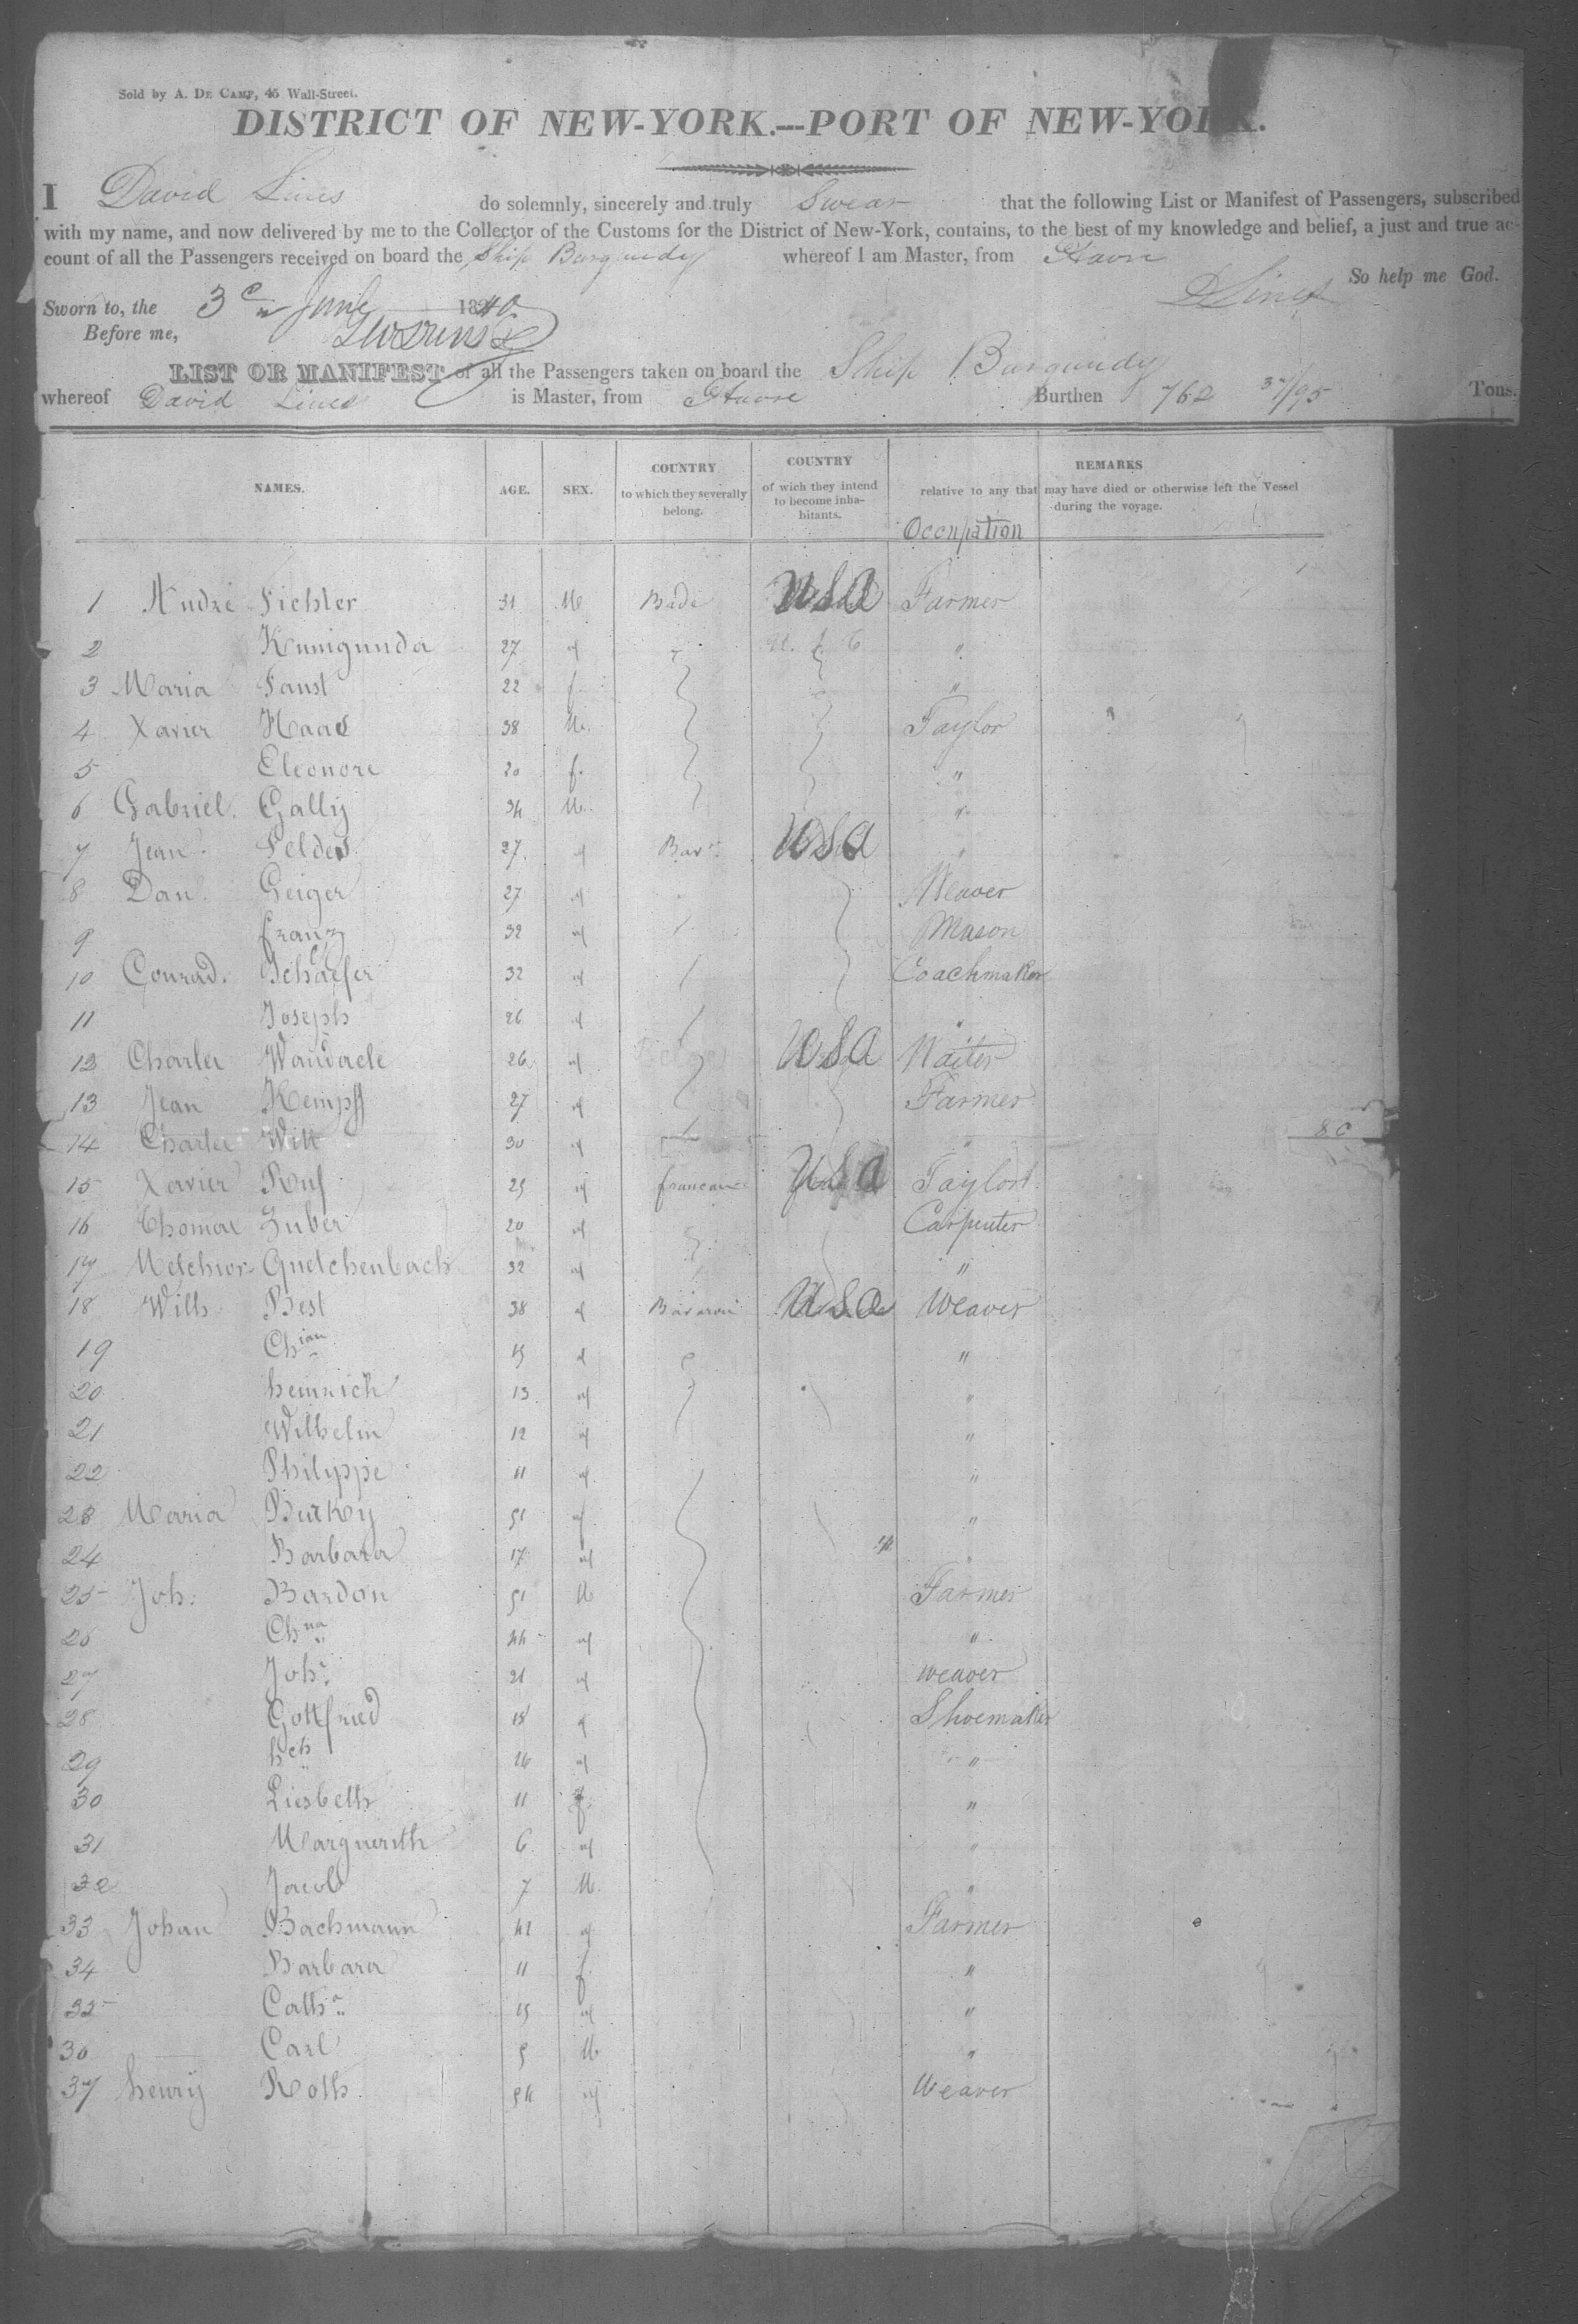 Sold by A. De Camp, 45 Wall-Street.
DISTRICT OF NEW-YORK.---PORT OF NEW-YORK.
I David Lines do solemnly, sincerely and truly Swear that the following List or Manifest of Passengers, subscribed
with my name, and now delivered by me to the Collector of the Customs for the District of New-York, contains, to the best of my knowledge and belief, a just and true ac-
count of all the Passengers received on board the Ship Burgundy whereof I am Master, from Havre
So help me God.
Sworn to, the 3 June 1840 D Lines
Before me,
LIST OR MANIFEST of all the Passengers taken on board the Ship Burgundy
whereof David Lines is Master, from Havre Burthen 762 /95 Tons.
NAMES. AGE. SEX. COUNTRY to which they severally belong. COUNTRY of wich they intend to become inha-bitants. REMARKS relative to any that may have died or otherwise left the Vessel during the voyage.
Occupation
1 André Fichter 31 M Bade USA Farmer
2 Kunigunda 27 "
3 Maria Faust 22 f "
4 Xavier Haas 38 M. Taylor
5 Eleonore 20 f. "
6 Gabriel Gally 34 M. "
7 Jean Felder 27 " Bav USA "
8 Dan. Geiger 27 " Weaver
9 franz 32 " Mason
10 Conrad. Schaefer 32 " Coachmaker
11 Joseph 26 " "
12 Charles 26 " USA Waiter
13 Jean Kempf 27 " Farmer
14 Charles Witt 30 " "
15 Xavier Ruf 25 " USA Taylor
16 Thomas Huber 20 " Carpenter
17 Melchior Quetchenbach 32 " "
18 Wilh Best 38 " USA Weaver
19 Chian 15 " "
20 heinrich 13 " "
21 Wilhelm 12 " "
22 Philippe 11 " "
23 Maria Burky 51 "
24 Barbara 17 " "
25 Joh: Bardon 51 M Farmer
26 Chna 44 " "
27 Joh: 21 " weaver
28 Gottfried 18 " Shoemaker
29 hch 16 " "
30 Liesbeth 11 f. "
31 Marguerith 6 " "
32 Jacob 7 M. "
33 Johan Bachmann 41 " Farmer
34 Barbara 11 f "
35 Catha 15 " "
36 Carl 5 M "
37 henry Roth 54 " Weaver